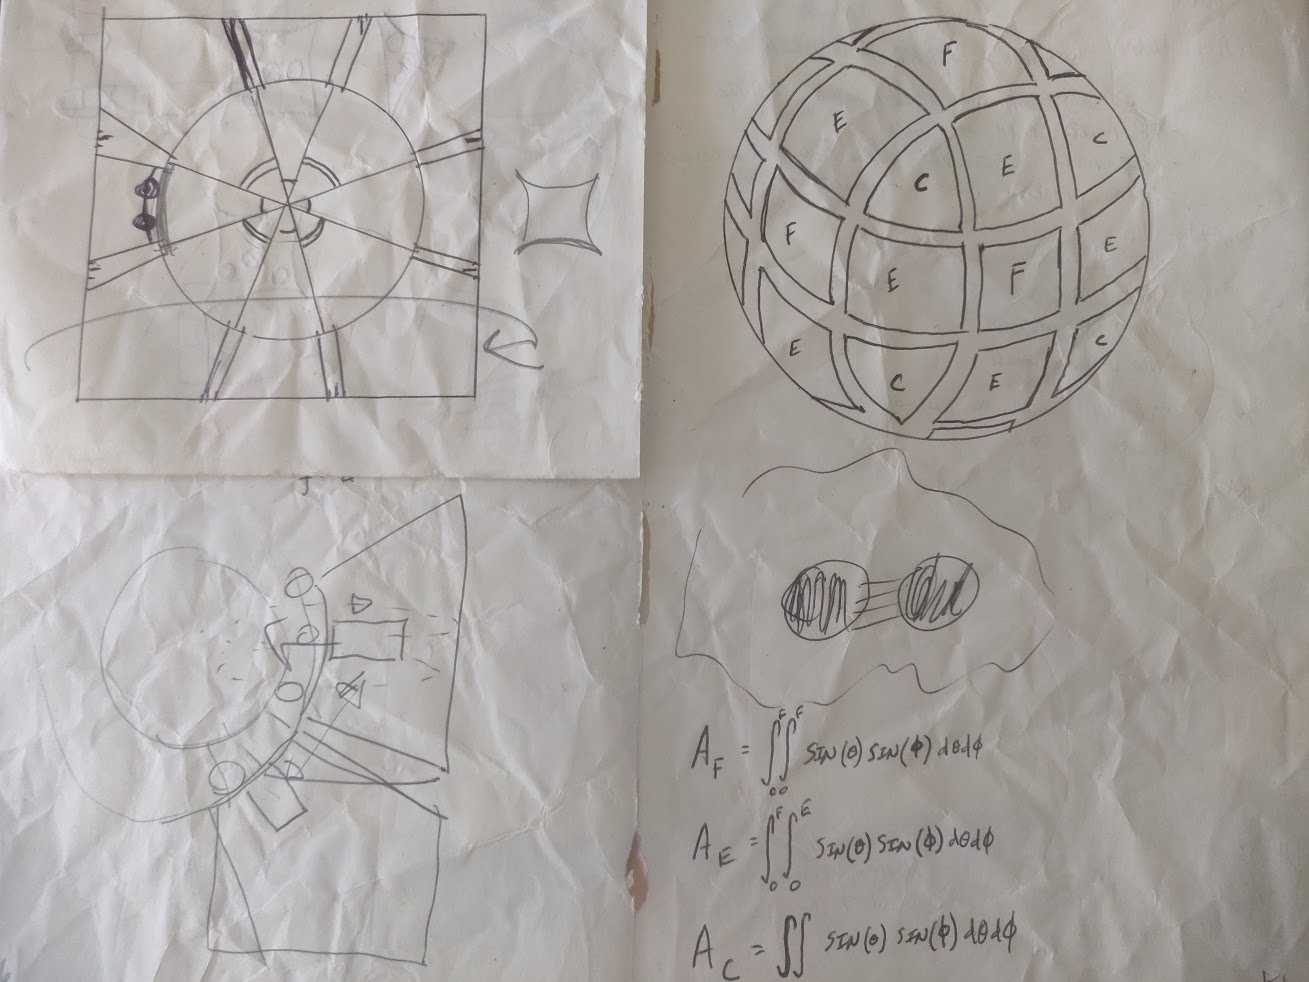 F
E
C
E
C
F
E
F
E
E
C
E
C
A_F = ∫₀^F ∫₀^F SIN(θ) SIN(ϕ) dθdϕ
A_E = ∫₀^F ∫₀^E SIN(θ) SIN(ϕ) dθdϕ
A_C = ∬ SIN(θ) SIN(ϕ) dθdϕ